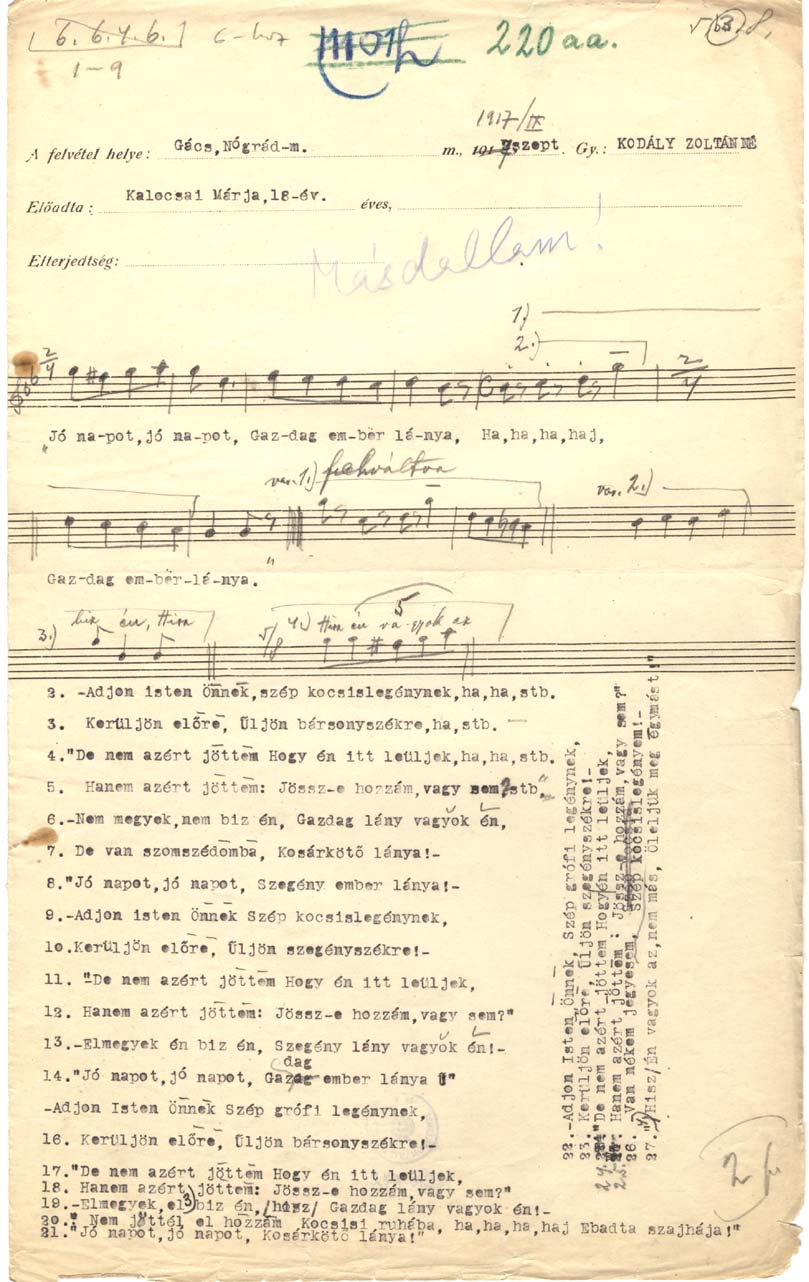 [6. 6. 4. 6.]
1-9
220 aa.
1917/IX
A felvétel helye: Gács,Nógrád-m. m., 191 szept. Gy.: KODÁLY ZOLTÁNNÉ
Előadta: Kalocsai Márja,18-év. éves,
Elterjedtség:
Más dallam!
1.)
2.)
2/4 2/4
Jó na-pot,jó na-pot, Gaz-dag em-bër lá-nya, Ha,ha,ha,haj,
var. 1.) felváltva var. 2.)
Gaz-dag em-bër-lá-nya."
3.) biz én, Hisz 5/8 4.) Hisz én va-gyok az
5
2. -Adjon isten Önnek,szép kocsislegénynek,ha,ha,stb.
3. Kerüljön előre, Üljön bársonyszékre,ha,stb.
4."De nem azért jöttem Hogy én itt leüljek,ha,ha,stb.
5. Hanem azért jöttem: Jössz-e hozzám,vagy sem?stb."
6.-Nem megyek,nem biz én, Gazdag lány vagyok én,
7. De van szomszédomba, Kosárkötő lánya!-
8."Jó napot,jó napot, Szegény ember lánya!-
9.-Adjon isten Önnek Szép kocsislegénynek,
10.Kerüljön előre, Üljön szegényszékre!-
11. "De nem azért jöttem Hogy én itt leüljek,
12. Hanem azért jöttem: Jössz-e hozzám,vagy sem?"
13.-Elmegyek én biz én, Szegény lány vagyok én!-
dag
14."Jó napot,jó napot, Gazdag ember lánya !"
-Adjon Isten Önnek Szép grófi legénynek,
16. Kerüljön előre, Üljön bársonyszékre!-
17."De nem azért jöttem Hogy én itt leüljek,
18. Hanem azért jöttem: Jössz-e hozzám,vagy sem?"
19.-Elmegyek,el 3) biz én,/hisz/ Gazdag lány vagyok én!-
20." Nem jöttél el hozzám Kocsisi ruhába, ha,ha,ha,haj Ebadta szajhája!"
21."Jó napot,jó napot, Kosárkötő lánya!"
22.-Adjon Isten Önnek, Szép grófi legénynek,
23. Kerüljön előre, Üljön szegényszékre!-
24."De nem azért jöttem Hogy én itt leüljek,
25. Hanem azért jöttem: Jössz-e hozzám,vagy sem?"
26. Van nékem jegyesem, Szép kocsislegényem!-
27."4) Hisz/Én vagyok az,nem más, Öleljük meg egymást!"